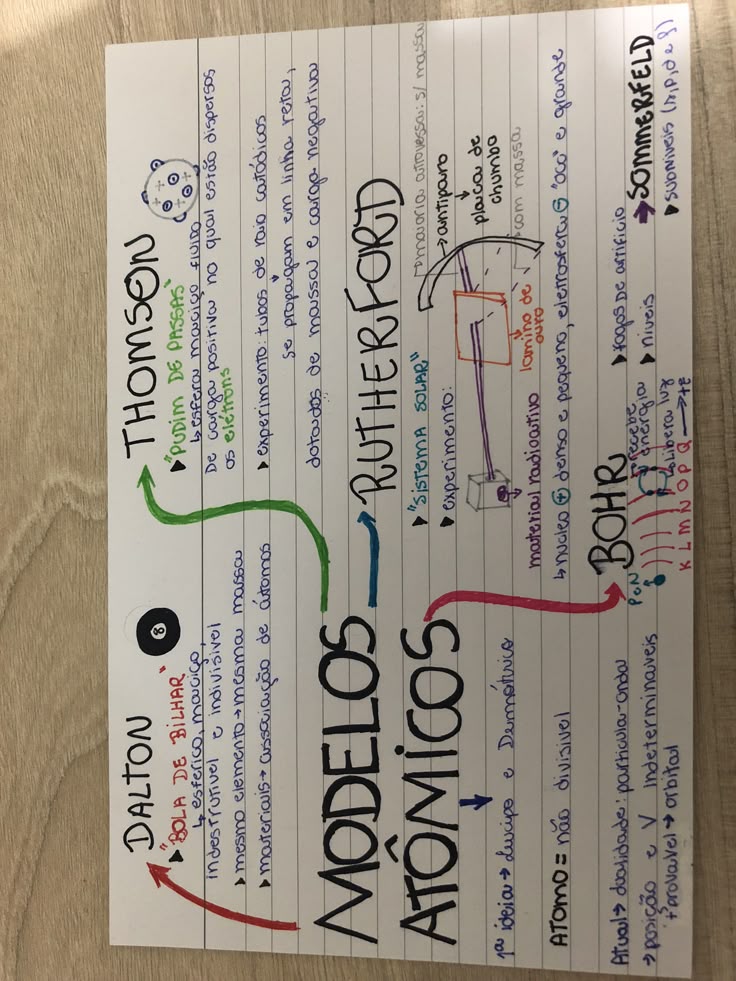 DALTON
8
▸"BOLA DE BILHAR"
↳ esférico, maciço,
indestrutível e indivisível
▸mesmo elemento→mesma massa
▸materiais→ associação de átomos
THOMSON
▸"PUDIM DE PASSAS"
↳ esfera maciça fluida
De carga positiva na qual estão dispersos
os elétrons
▸experimento: tubos de raio catódicos
se propagam em linha reta,
dotados de massa e carga negativa
MODELOS
ATÔMICOS
1ª ideia→ Leucipo e Demócrito
ATOMO = não divisível
RUTHERFORD
▸"SISTEMA SOLAR"
▸experimento:
maioria atravessa: s/ massa
→antiparo
placa de
chumbo
com massa
lamina de
ouro
material radioativo
↳ núcleo ⊕ denso e pequeno, eletrosfera ⊖ "oca" e grande
BOHR
P e N
K L M N O P Q → +E
recebe
energia
libera luz
▸fogos De artifício
▸níveis
→SOMMERFELD
▸subníveis (s,p,d e f)
Atual→ dualidade: partícula-onda
→posição e V indetermináveis
+provável→ orbital